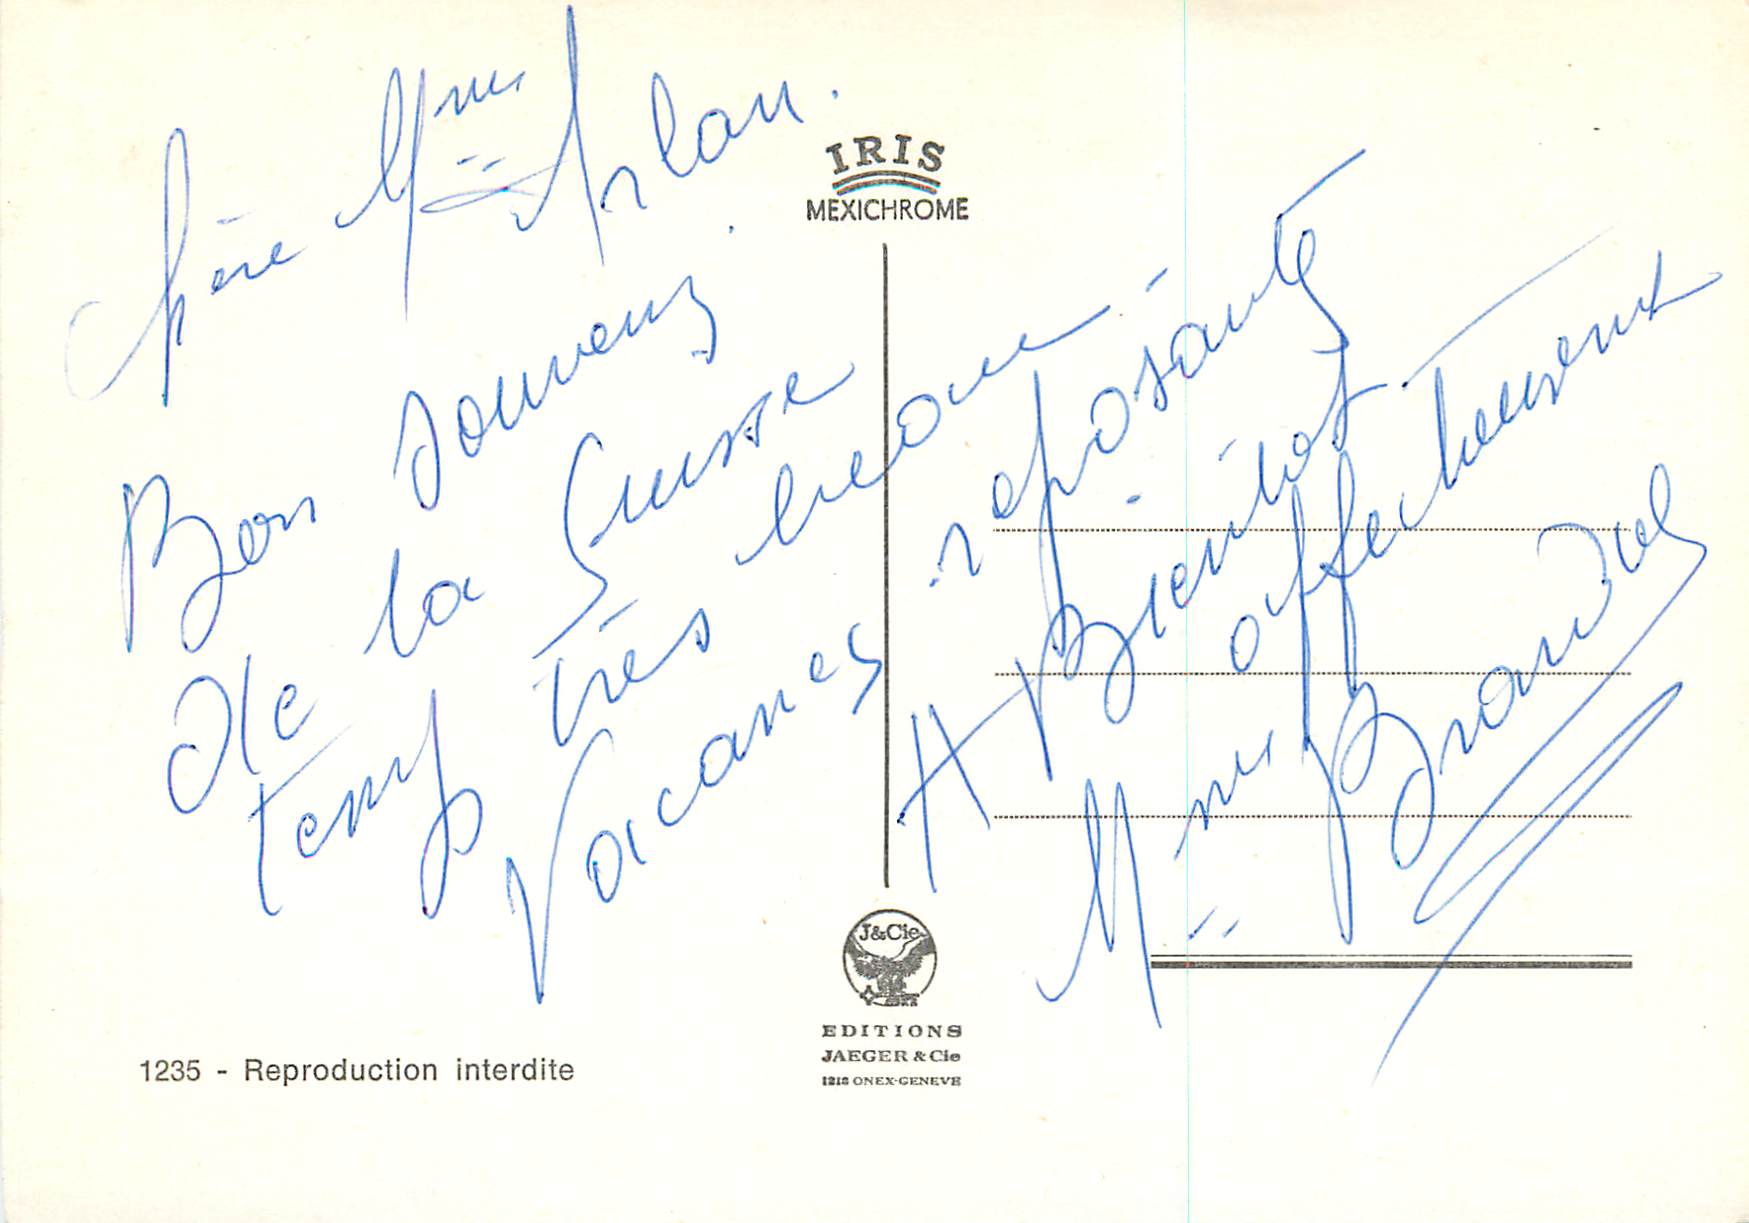 Chère Mme Arlan.
Bon souvenir
de la Suisse
temps très beau
Vacances reposante
A Bientot.
affectueusement
Mme Brandel
IRIS
MEXICHROME
J&Cie
EDITIONS
JAEGER & Cie
1213 ONEX-GENEVE
1235 - Reproduction interdite